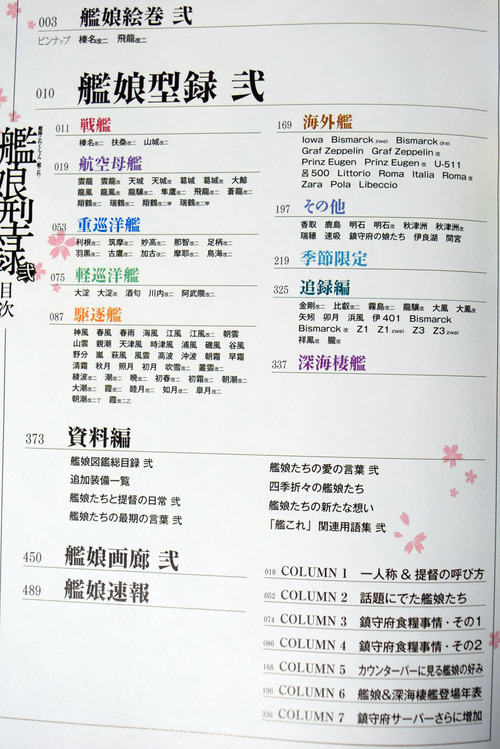 003 艦娘絵巻 弐
ピンナップ 榛名改二 飛龍改二
010 艦娘型録 弐
艦娘型録 弐
目次
011 戦艦
榛名改二 扶桑改二 山城改二
019 航空母艦
雲龍 雲龍改 天城 天城改 葛城 葛城改 大鯨
龍鳳 龍鳳改 龍驤改二 隼鷹改二 飛龍改二 蒼龍改二
翔鶴改二 翔鶴改二甲 瑞鶴改二 瑞鶴改二甲
053 重巡洋艦
利根改二 筑摩改二 妙高改二 那智改二 足柄改二
羽黒改二 古鷹改二 加古改二 摩耶改二 鳥海改二
075 軽巡洋艦
大淀 大淀改 酒匂 川内改二 阿武隈改二
087 駆逐艦
神風 春風 春雨 海風 江風 江風改二 朝雲
山雲 親潮 天津風 時津風 浦風 磯風 谷風
野分 嵐 萩風 風雲 高波 沖波 朝霜 早霜
清霜 秋月 照月 初月 吹雪改二 叢雲改二
綾波改二 潮改二 暁改二 初春改二 初霜改二 朝潮改二
大潮改二 霞改二 睦月改二 如月改二 皐月改二
朝潮改二丁 霞改二乙
169 海外艦
Iowa Bismarck zwei Bismarck drei
Graf Zeppelin Graf Zeppelin 改
Prinz Eugen Prinz Eugen 改 U-511
呂500 Littorio Roma Italia Roma 改
Zara Pola Libeccio
197 その他
香取 鹿島 明石 明石改 秋津洲 秋津洲改
瑞穂 速吸 鎮守府の娘たち 伊良湖 間宮
219 季節限定
325 追録編
金剛改二 比叡改二 霧島改二 龍驤改 大鳳 大鳳改
矢矧 卯月 浜風 伊401 Bismarck
Bismarck 改 Z1 Z1 zwei Z3 Z3 zwei
祥鳳改 朧改
337 深海棲艦
373 資料編
艦娘図鑑総目録 弐
追加装備一覧
艦娘たちと提督の日常 弐
艦娘たちの最期の言葉 弐
艦娘たちの愛の言葉 弐
四季折々の艦娘たち
艦娘たちの新たな想い
「艦これ」関連用語集 弐
450 艦娘画廊 弐
489 艦娘速報
018 COLUMN 1 一人称&提督の呼び方
052 COLUMN 2 話題にでた艦娘たち
074 COLUMN 3 鎮守府食糧事情・その1
086 COLUMN 4 鎮守府食糧事情・その2
168 COLUMN 5 カウンターバーに見る艦娘の好み
196 COLUMN 6 艦娘&深海棲艦登場年表
336 COLUMN 7 鎮守府サーバーさらに増加